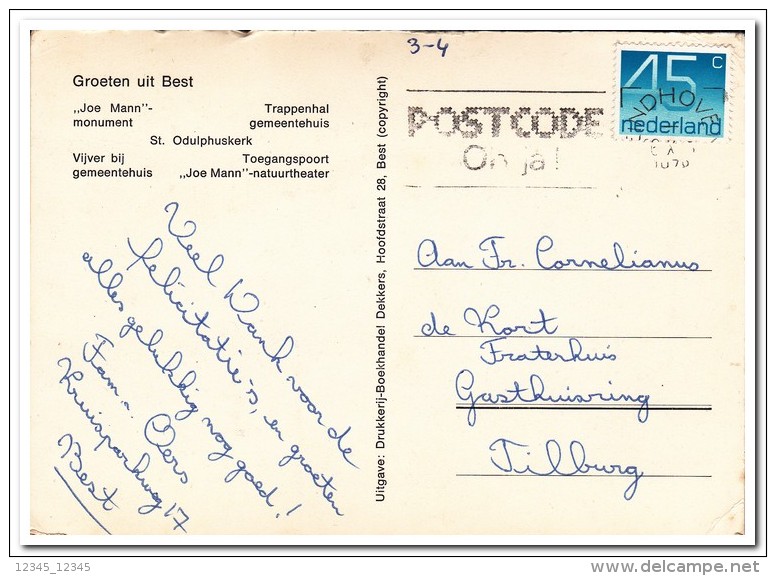 3-4
Groeten uit Best
„Joe Mann"-
monument
Trappenhal
gemeentehuis
St. Odulphuskerk
Vijver bij
gemeentehuis
Toegangspoort
„Joe Mann"-natuurtheater
Uitgave: Drukkerij-Boekhandel Dekkers, Hoofdstraat 28, Best (copyright)
45 c
nederland
NDHOVE
POSTCODE
Oh ja!
Veel Dank voor de
felicitatie-s, en groeten
alles gelukkig nog goed!
Fam. Oers
Kruisparkweg 17
Best
Aan Fr. Cornelianus
de Kort
Fraterhuis
Gasthuisring
Tilburg
12345_12345
www.delcampe.net